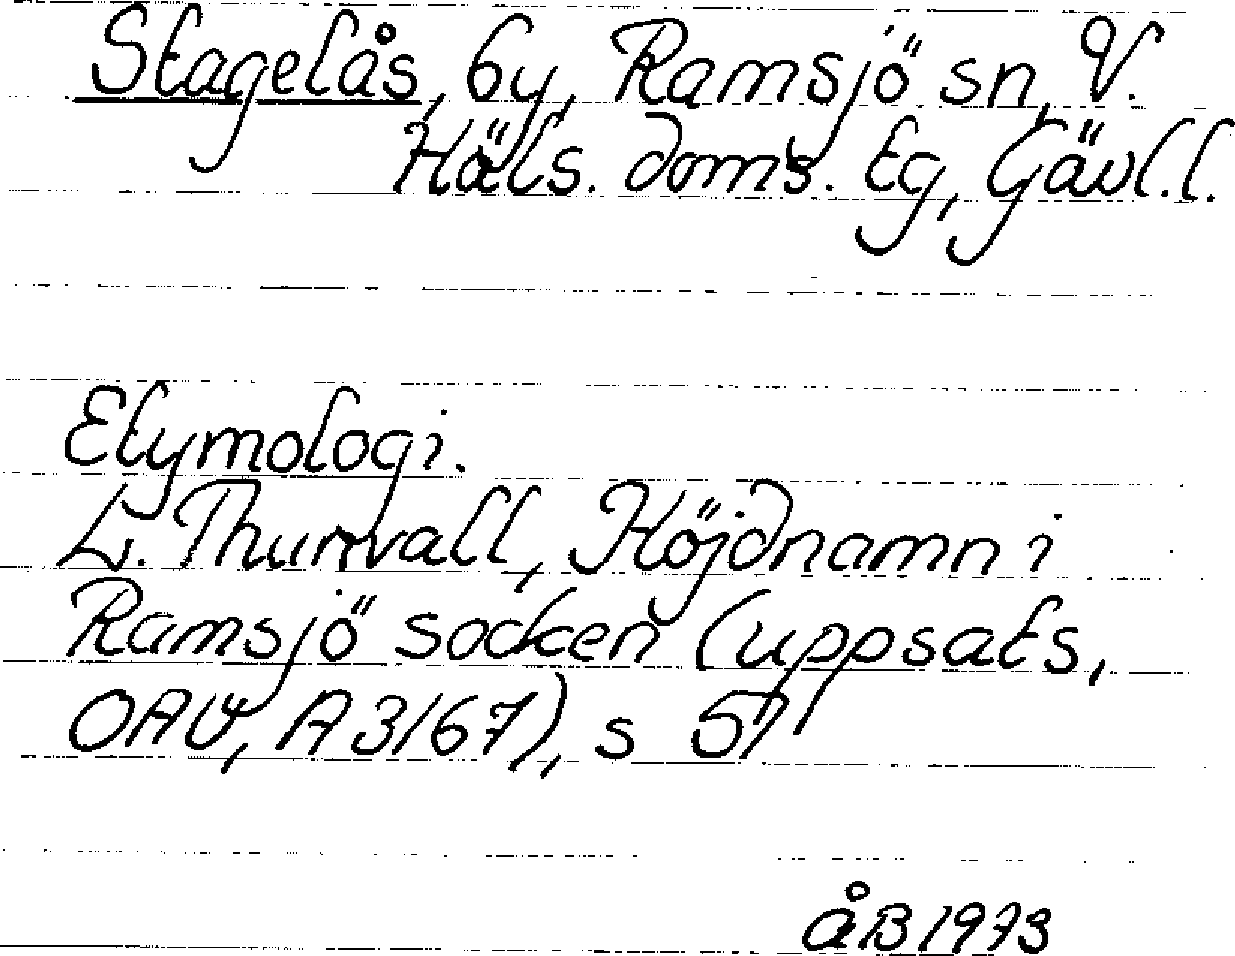 Stagelås, by, Ramsjö sn, V.
Häls. doms. tg, Gävl.l.
Etymologi.
L. Thunvall, Höjdnamn i
Ramsjö socken (uppsats,
OAU, A 3167), s 57
åB 1973